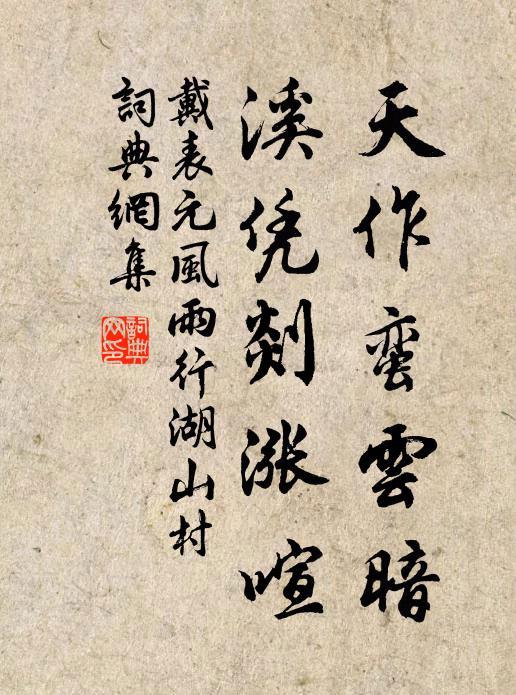 天作蛮雲暗
溪凭剡涨喧
戴表元風雨行湖山村
詞典網集
詞典網印